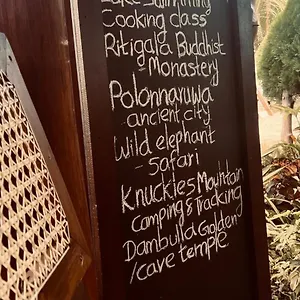 Lake Swimming
Cooking class
Ritigala Buddhist
- Monastery
Polonnaruwa
- ancient city
Wild elephant
- Safari
Knuckles Mauntain
Camping & Tracking
Dambulla Golden
/cave temple